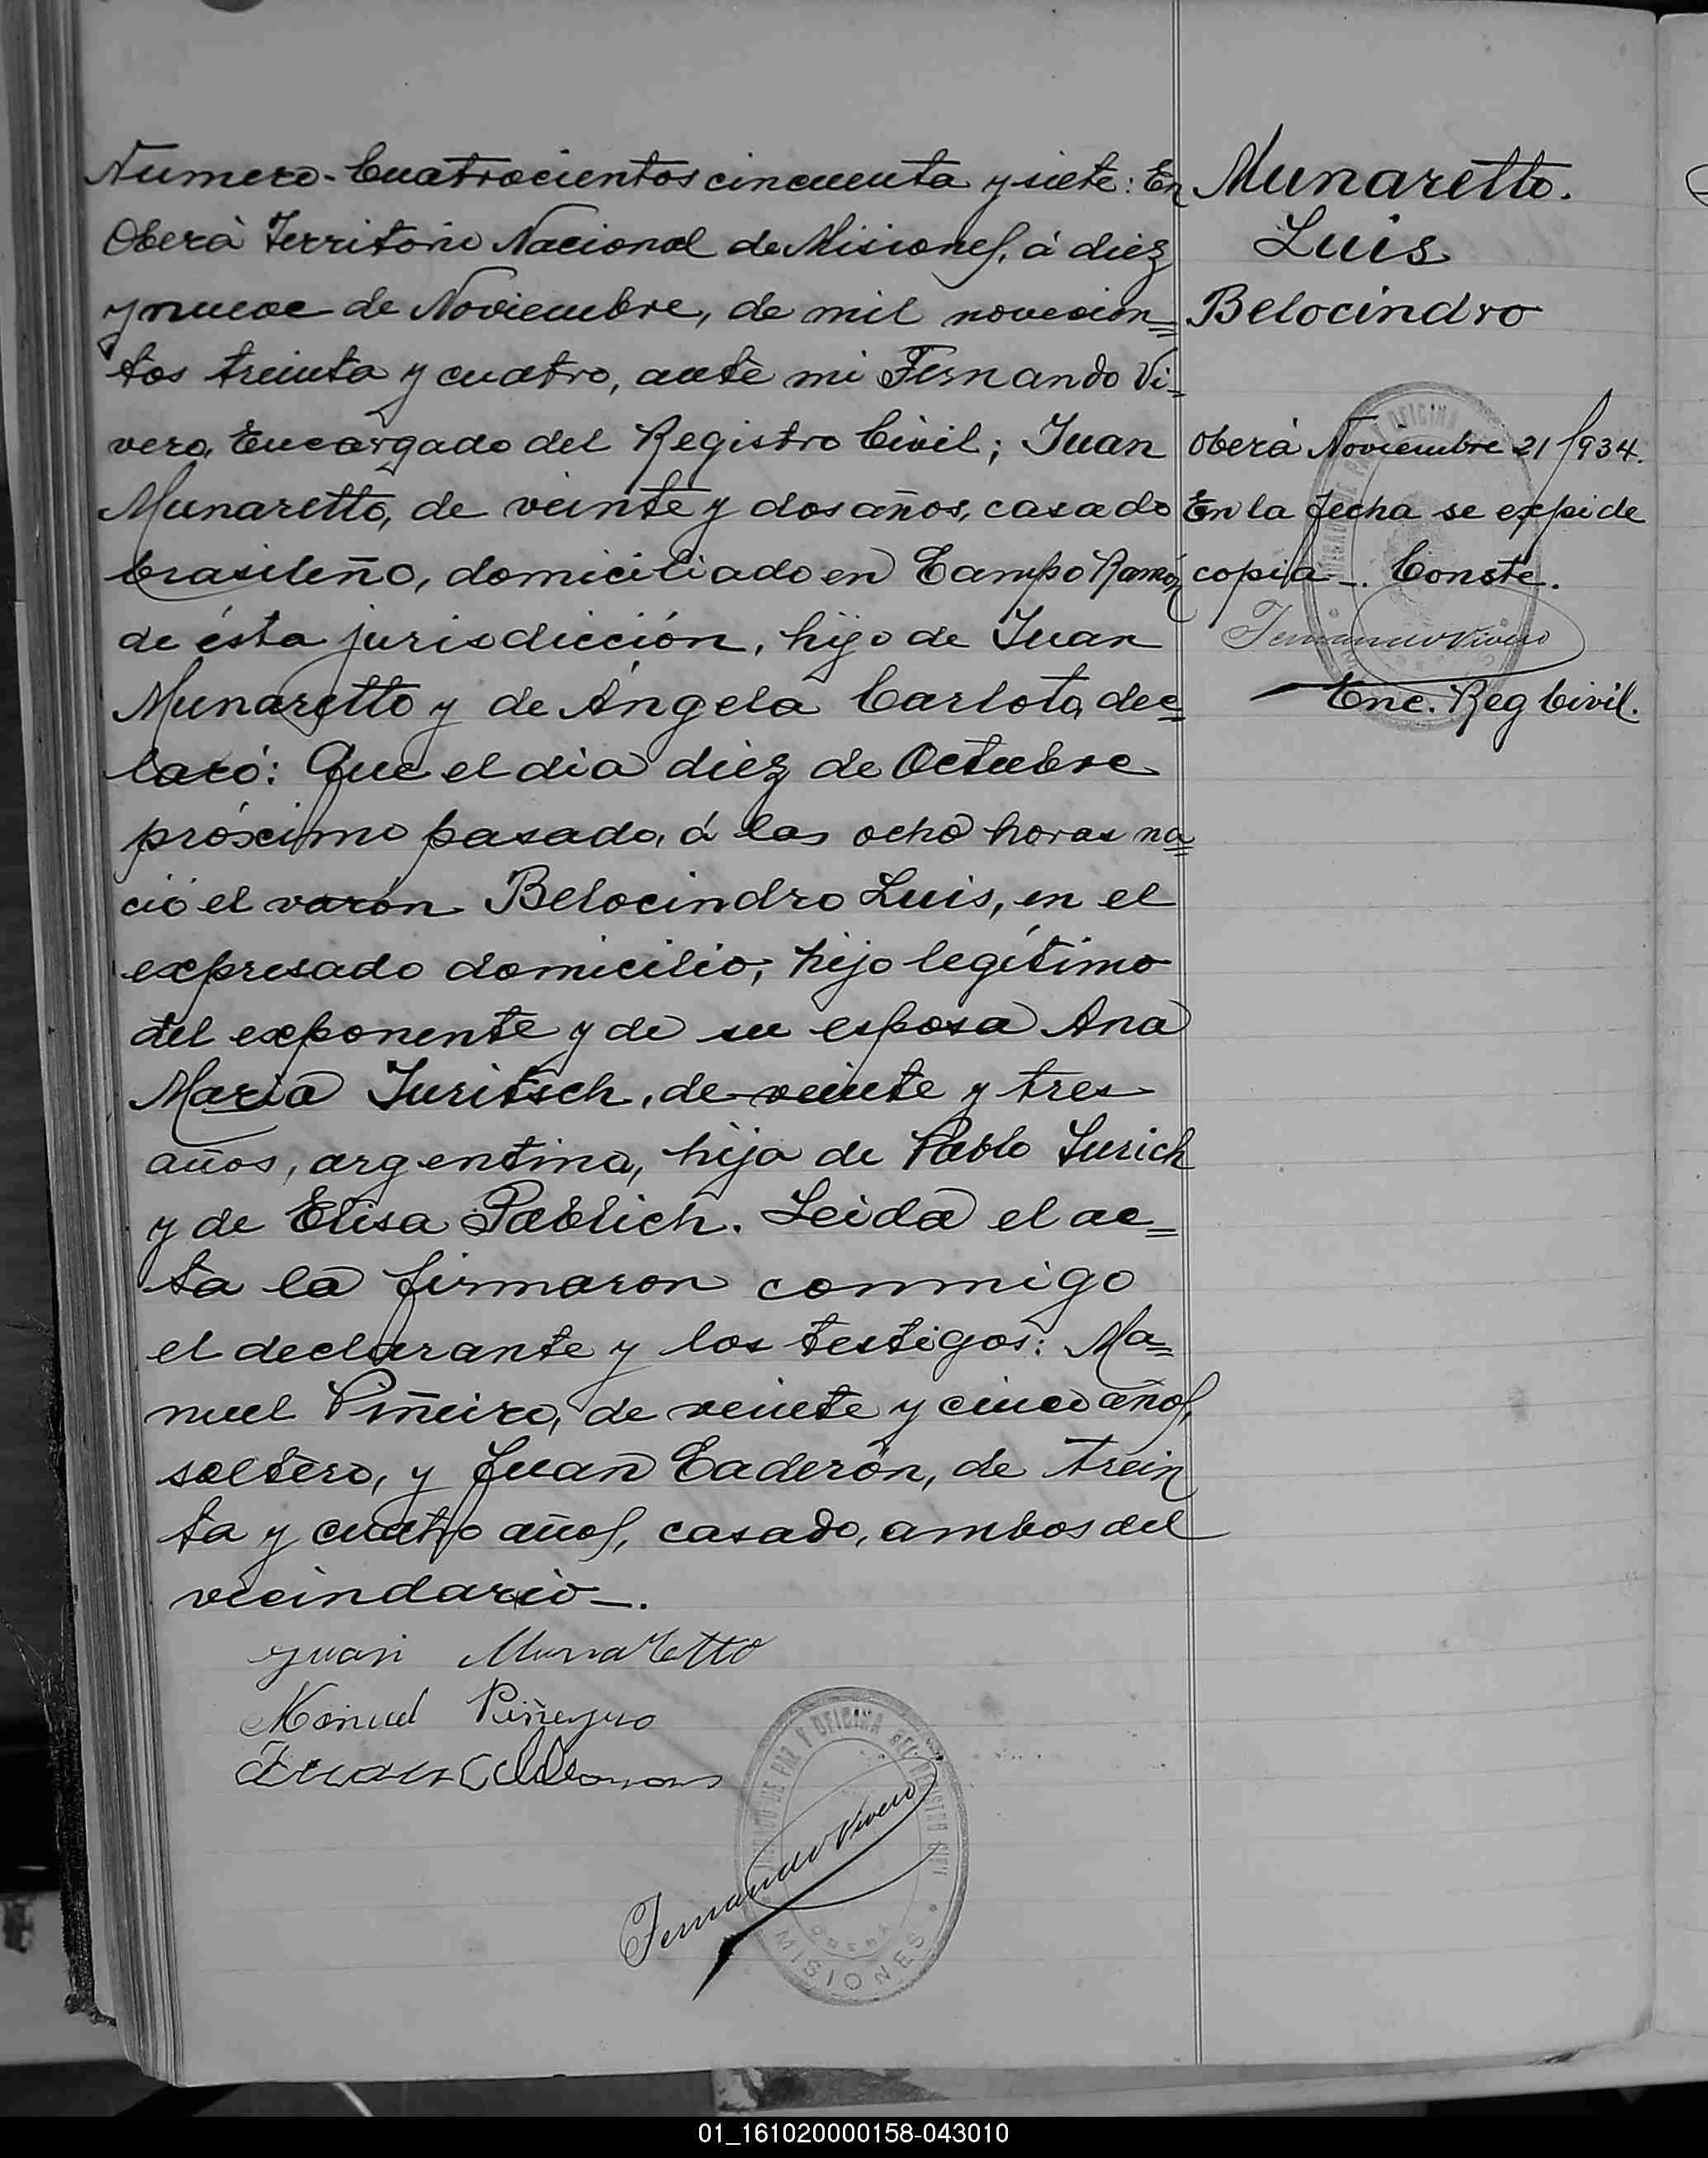 Numero-Cuatrocientos cincuenta y siete: En
Oberà Territorio Nacional de Misiones, á diez
y nueve de Noviembre, de mil novecien=
tos treinta y cuatro, ante mi Fernando Vi-
vero, Encargado del Registro Civil; Juan
Munaretto, de veinte y dos años, casado
brasileño, domiciliado en Campo Ramón
de ésta jurisdicción, hijo de Juan
Munaretto y de Ángela Carlota, dec=
laró: Que el dia diez de Octubre
próximo pasado, á las ocho horas na=
ció el varón Belocindro Luis, en el
expresado domicilio; hijo legítimo
del exponente y de su esposa Ana
Maria Juritsch, de veinte y tres
años, argentina, hija de Pablo Jurich
y de Elisa Pablich. Leida el ac=
ta la firmaron conmigo
el declarante y los testigos: Ma=
nuel Piñeiro, de veinte y cinco años,
soltero, y Juan Caderón, de trein
ta y cuatro años, casado, ambos del
vecindario-.
Juan Munaretto
Manuel Piñeyro
Juan
Fernando Vivero
JUZGADO DE PAZ Y OFICINA DEL REGISTRO CIVIL
OBERÁ
MISIONES
Munaretto.
Luis
Belocindro
Oberà Noviembre 21/934.
En la fecha se expide
copia-. Conste.
Fernando Vivero
Enc. Reg Civil.
01_161020000158-043010